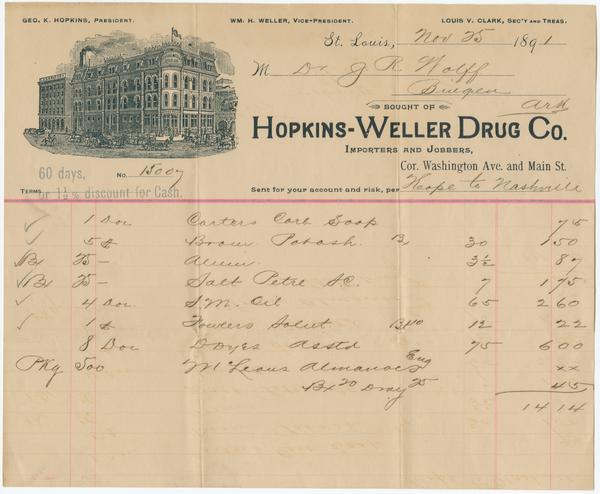 GEO. K. HOPKINS, PRESIDENT. WM. H. WELLER, VICE-PRESIDENT. LOUIS V. CLARK, SEC'Y AND TREAS.
St. Louis, Nov 25 1891
M Dr J R Wolff
Bingen
Ark
BOUGHT OF
HOPKINS-WELLER DRUG CO.
IMPORTERS AND JOBBERS,
Cor. Washington Ave. and Main St.
60 days,
No. 15007
TERMS or 1½ % discount for Cash. Sent for your account and risk, per Hope to Nashville
1 Doz Carters Carb Soap 75
5 # Brom Potash B 30 1 50
B 25 - Alum 3½ 87
B 25 - Salt Petre 7 1 75
4 Doz S.M. Oil 65 2 60
1 # Fowlers Solut 12 22
8 Doz Dyes Asstd 75 6 00
Pkg 500 McLeans Almanacs Eng xx
Bx 20 Dray 25 45
14 14